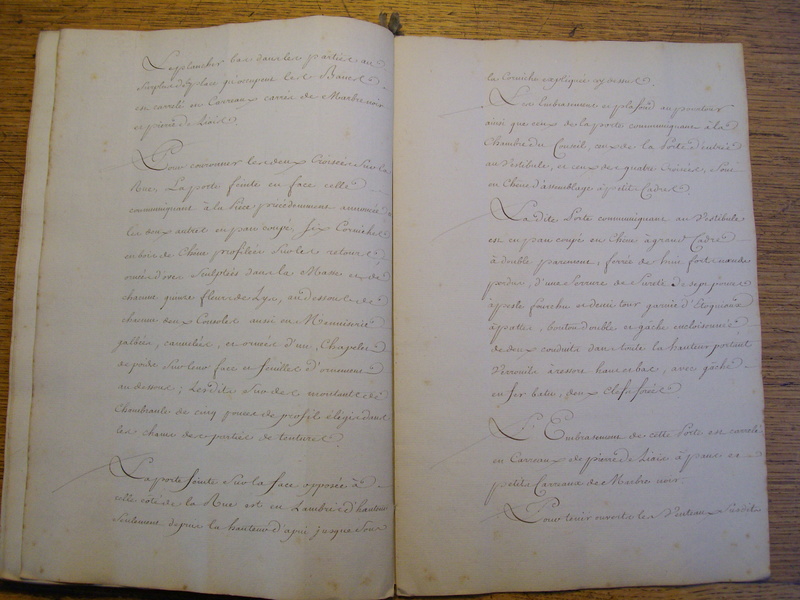 Le plancher bas dans les parties au
Surplus de place qu'occupent les Bancs
est carrelé en Carreaux carrés de Marbre noir
et pierre de Liais.
Pour couronner les deux Croisées Sur la
Rue, La porte feinte en face celle
communiquant à la Pièce précédemment annoncée
les deux autres en pan coupé, Six Corniches
en bois de Chêne profilées Sur les retours
ornées d'oves Sculptées dans la Masse et de
chacune quatre fleurs de Lys, au dessous de
chacune deux Consoles aussi en Menuiserie
galbées, cannelées, et ornées d'un Chapelet
de piede Sur leur face et feuilles d'ornement
au dessous; lesdites Sur des montants de
Chambranle de cinq pouces de profil élégis dans
les champs des parties de tentures.
La porte feinte Sur la face opposée à
celle côté de la Rue est en Lambris d'hauteur
Seulement depuis la hauteur d'apui jusque Sous
la Corniche expliquée cy dessus.
Les Embrasements et plafond au pourtour
ainsi que ceux de la porte communiquant à la
Chambre du Conseil, ceux de la Porte d'entrée
au Vestibule, et ceux des quatre Croisées, Sont
en Chêne d'assemblage à petits Cadres.
La dite Porte communiquant au Vestibule
est en pan coupé en Chêne à grand Cadre
à double parement, ferrée de huit fortes
d'une Serrure de Sureté de Sept pouces
à peste fourchu et demi tour garnie d'Etoquiaux
à pattes, bouton double et gâche encloisonnée,
de deux conduits dans toute la hauteur portant
Verrouils à ressort haut et bas, avec gâche
en fer batu, deux Clefs forées.
L'Embrasement de cette Porte est carrelé
en Carreaux de pierre de Liais à pans et
petits Carreaux de Marbre noir.
Pour tenir ouverts les Venteaux Susdits